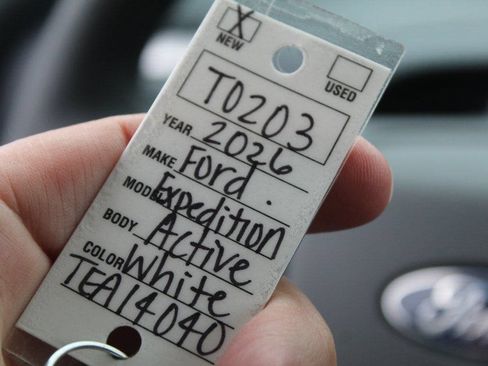 X
NEW
USED
T0203
YEAR 2026
MAKE Ford.
MODEL Expedition
BODY Active
COLOR White
TEA14040
Ford